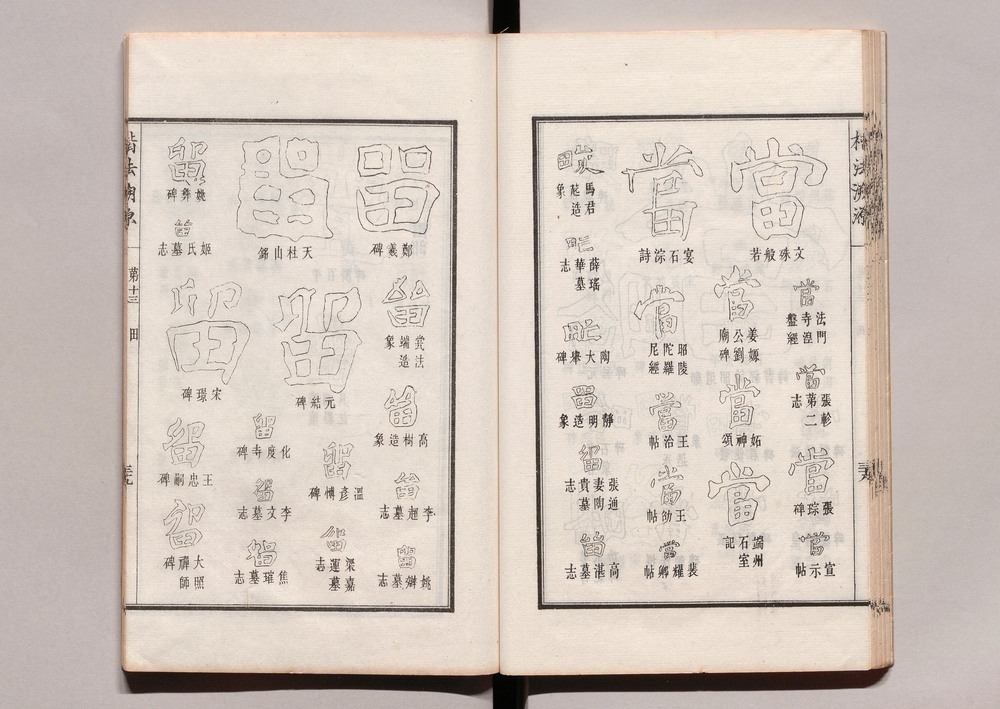 當
文殊般若
當
法門寺湼槃經
當
張軫第二志
當
張琮碑
當
宣示帖
當
姜嫄公劉廟碑
當
妬神頌
當
端州石室記
當
宴石淙詩
當
昭陵陀羅尼經
當
王洽帖
當
王劭帖
當
裴耀卿帖
馬君起造象
薛瑤華墓志
陶大舉碑
畱
靜明造象
留
張通妻陶貴墓志
畱
高湛墓志
楷法溯源
第十三
田
鄭羲碑
法端造象
高樹造象
李超墓志
姚辯墓志
天柱山銘
留
元結碑
溫彥博碑
梁嘉運墓志
留
化度寺碑
留
李文墓志
焦璀墓志
姚彝碑
姬氏墓志
留
宋璟碑
留
王忠嗣碑
留
大照禪師碑